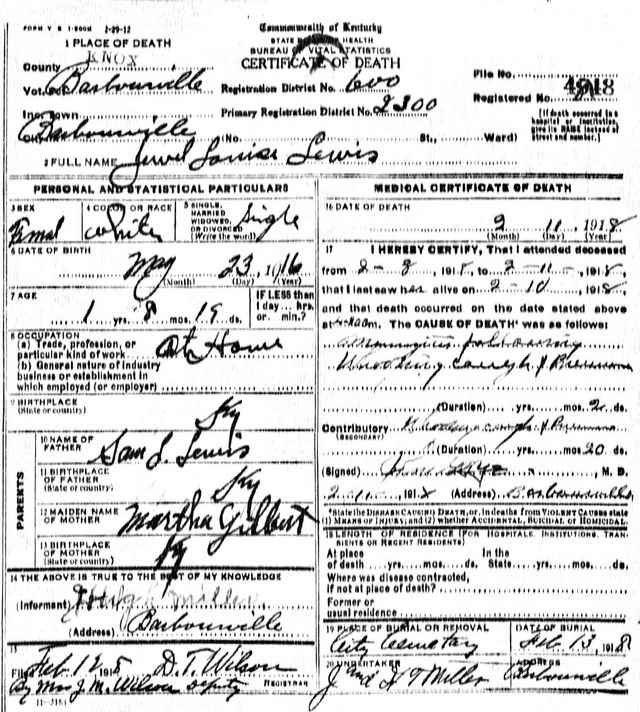 FORM V S 1-500M 2-29-12
Commonwealth of Kentucky
STATE BOARD OF HEALTH
BUREAU OF VITAL STATISTICS
CERTIFICATE OF DEATH
1 PLACE OF DEATH
County KNOX
Vot. Pct. Barbourville
Registration District No. 600
File No. 4918
Registered No.
Inc. Town
Primary Registration District No. 2300
City Barbourville (No. St., Ward)
[If death occurred in a hospital or institution, give its NAME instead of street and number.]
2 FULL NAME Jewel Louise Lewis
PERSONAL AND STATISTICAL PARTICULARS
3 SEX Femal
4 COLOR OR RACE White
5 SINGLE, MARRIED WIDOWED, OR DIVORCED (Write the word) Single
6 DATE OF BIRTH May 23, 1916
(Month) (Day) (Year)
7 AGE 1 yrs. 8 mos. 19 ds.
IF LESS than 1 day... hrs. or min.?
8 OCCUPATION
(a) Trade, profession, or particular kind of work At Home
(b) General nature of industry business or establishment in which employed (or employer)
9 BIRTHPLACE (State or country) Ky
PARENTS
10 NAME OF FATHER Sam J. Lewis
11 BIRTHPLACE OF FATHER (State or country) Ky
12 MAIDEN NAME OF MOTHER Martha Gilbert
13 BIRTHPLACE OF MOTHER (State or country) Ky
14 THE ABOVE IS TRUE TO THE BEST OF MY KNOWLEDGE
(Informant) Miller
(Address) Barbourville
15
Filed Feb. 12 1918 D. T. Wilson
By Mrs J. M. Wilson Deputy REGISTRAR
11-3184
MEDICAL CERTIFICATE OF DEATH
16 DATE OF DEATH
2 11, 1918
(Month) (Day) (Year)
17 I HEREBY CERTIFY, That I attended deceased
from 2-8, 1918, to 2-11-, 1918,
that I last saw her alive on 2-10, 1918,
and that death occurred on the date stated above
at m. The CAUSE OF DEATH* was as follows:
following
Whooping cough &
(Duration) yrs. mos. 2 ds.
Contributory Whooping cough &
(SECONDARY)
(Duration) yrs. mos. 20 ds.
(Signed) , M. D.
2-11, 1918 (Address) Barbourville
*State the DISEASE CAUSING DEATH, or, in deaths from VIOLENT CAUSES state (1) MEANS OF INJURY; and (2) whether ACCIDENTAL, SUICIDAL OR HOMICIDAL.
18 LENGTH OF RESIDENCE (FOR HOSPITALS, INSTITUTIONS, TRANSIENTS OR RECENT RESIDENTS)
At place of death yrs. mos. ds. In the State yrs. mos. ds.
Where was disease contracted, if not at place of death?
Former or usual residence
19 PLACE OF BURIAL OR REMOVAL City Cemetary
DATE OF BURIAL Feb. 13, 1918
20 UNDERTAKER J and H T Miller
ADDRESS Barbourville